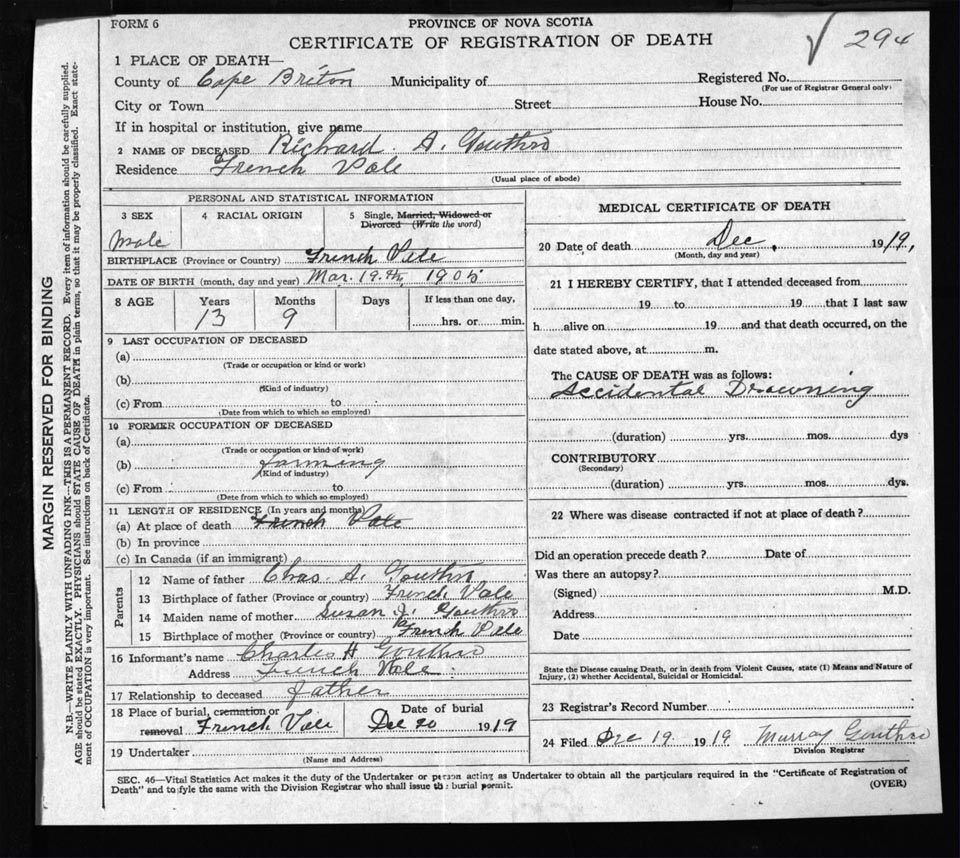 FORM 6
PROVINCE OF NOVA SCOTIA
CERTIFICATE OF REGISTRATION OF DEATH
√ 294
1 PLACE OF DEATH—
County of Cape Briton Municipality of Registered No.
(For use of Registrar General only)
City or Town Street House No.
If in hospital or institution, give name
2 NAME OF DECEASED Richard A. Gouthro
Residence French Vale
(Usual place of abode)
PERSONAL AND STATISTICAL INFORMATION
3 SEX 4 RACIAL ORIGIN 5 Single, Married, Widowed or Divorced (Write the word)
Male
BIRTHPLACE (Province or Country) French Vale
DATE OF BIRTH (month, day and year) Mar. 19th, 1905
8 AGE Years Months Days If less than one day,
13 9 hrs. or min.
9 LAST OCCUPATION OF DECEASED
(a)
(Trade or occupation or kind or work)
(b)
(Kind of industry)
(c) From to
(Date from which to which so employed)
10 FORMER OCCUPATION OF DECEASED
(a)
(Trade or occupation or kind of work)
(b) farming
(Kind of industry)
(c) From to
(Date from which to which so employed)
11 LENGTH OF RESIDENCE (In years and months)
(a) At place of death French Vale
(b) In province
(c) In Canada (if an immigrant)
Parents
12 Name of father Chas. A. Gouthro
13 Birthplace of father (Province or country) French Vale
14 Maiden name of mother Susan J. Gouthro
15 Birthplace of mother (Province or country) French Vale
16 Informant's name Charles H Gouthro
Address French Vale
17 Relationship to deceased father
18 Place of burial, cremation or removal French Vale
Date of burial
Dec 20 1919
19 Undertaker
(Name and Address)
MEDICAL CERTIFICATE OF DEATH
20 Date of death Dec, 1919,
(Month, day and year)
21 I HEREBY CERTIFY, that I attended deceased from
19 to 19 that I last saw
h alive on 19 and that death occurred, on the
date stated above, at m.
The CAUSE OF DEATH was as follows:
Accidental Drowning
(duration) yrs. mos. dys
CONTRIBUTORY
(Secondary)
(duration) yrs. mos. dys.
22 Where was disease contracted if not at place of death?
Did an operation precede death? Date of
Was there an autopsy?
(Signed) M.D.
Address
Date
State the Disease causing Death, or in death from Violent Causes, state (1) Means and Nature of
Injury, (2) whether Accidental, Suicidal or Homicidal.
23 Registrar's Record Number
24 Filed Dec 19. 1919 Murray Gouthro
Division Registrar
SEC. 46—Vital Statistics Act makes it the duty of the Undertaker or person acting as Undertaker to obtain all the particulars required in the "Certificate of Registration of
Death" and to fyle the same with the Division Registrar who shall issue the burial permit.
(OVER)
MARGIN RESERVED FOR BINDING
N.B.—WRITE PLAINLY WITH UNFADING INK—THIS IS A PERMANENT RECORD. Every item of information should be carefully supplied.
AGE should be stated EXACTLY. PHYSICIANS should STATE CAUSE OF DEATH in plain terms, so that it may be properly classified. Exact state-
ment of OCCUPATION is very important. See instructions on back of Certificate.